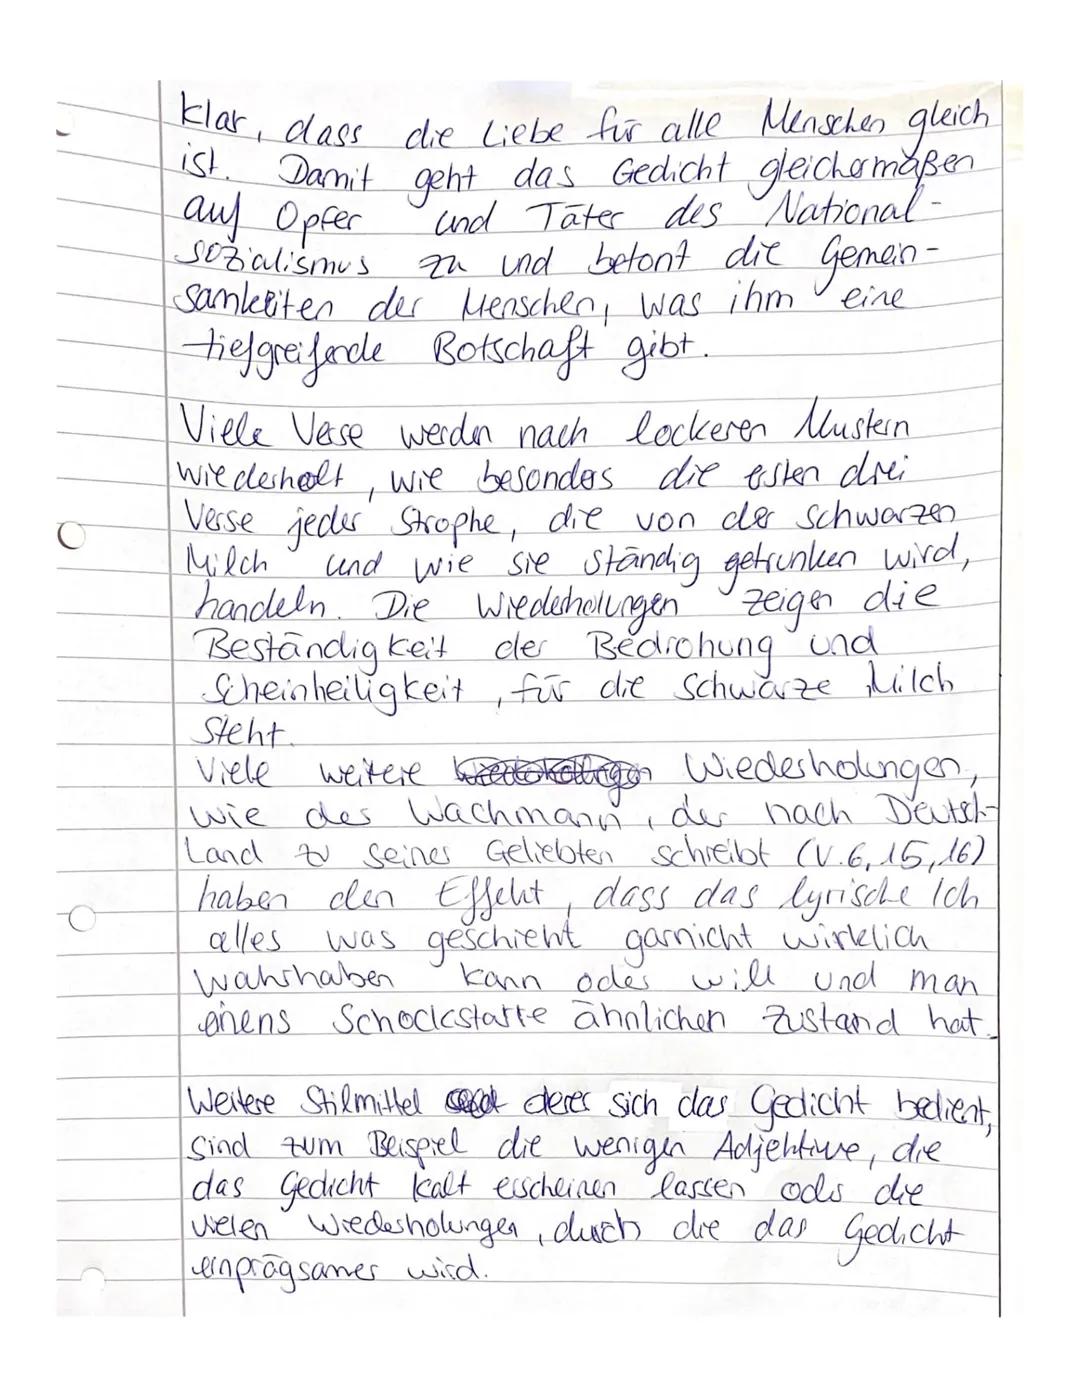 klar, dass die Liebe für alle Menschen gleich
ist. Damit geht das Gedicht gleichermaßen
auf Opfer und Täter des National-
sozialismus zu und betont die Gemein-
samkeiten der Menschen, was ihm eine
tiefgreifende Botschaft gibt.
Viele Verse werden nach lockeren Mustern
wiederholt, wie besonders die ersten drei
Verse jeder Strophe, die von der schwarzen
Milch und wie sie ständig getrunken wird,
handeln. Die Wiederholungen zeigen die
Beständigkeit der Bedrohung und
Scheinheiligkeit, für die schwarze Milch
steht.
Viele weitere Wiederholungen,
wie des Wachmann, der nach Deutsch-
Land zu seiner Geliebten schreibt (V.6,15,16)
haben den Effekt, dass das lyrische Ich
alles was geschieht garnicht wirklich
wahrhaben kann oder will und man
einens Schockstarre ähnlichen Zustand hat.
Weitere Stilmittel derer sich das Gedicht bedient,
sind zum Beispiel die wenigen Adjektive, die
das Gedicht kalt erscheinen lassen oder die
vielen Wiederholungen, durch die das Gedicht
einprägsamer wird.